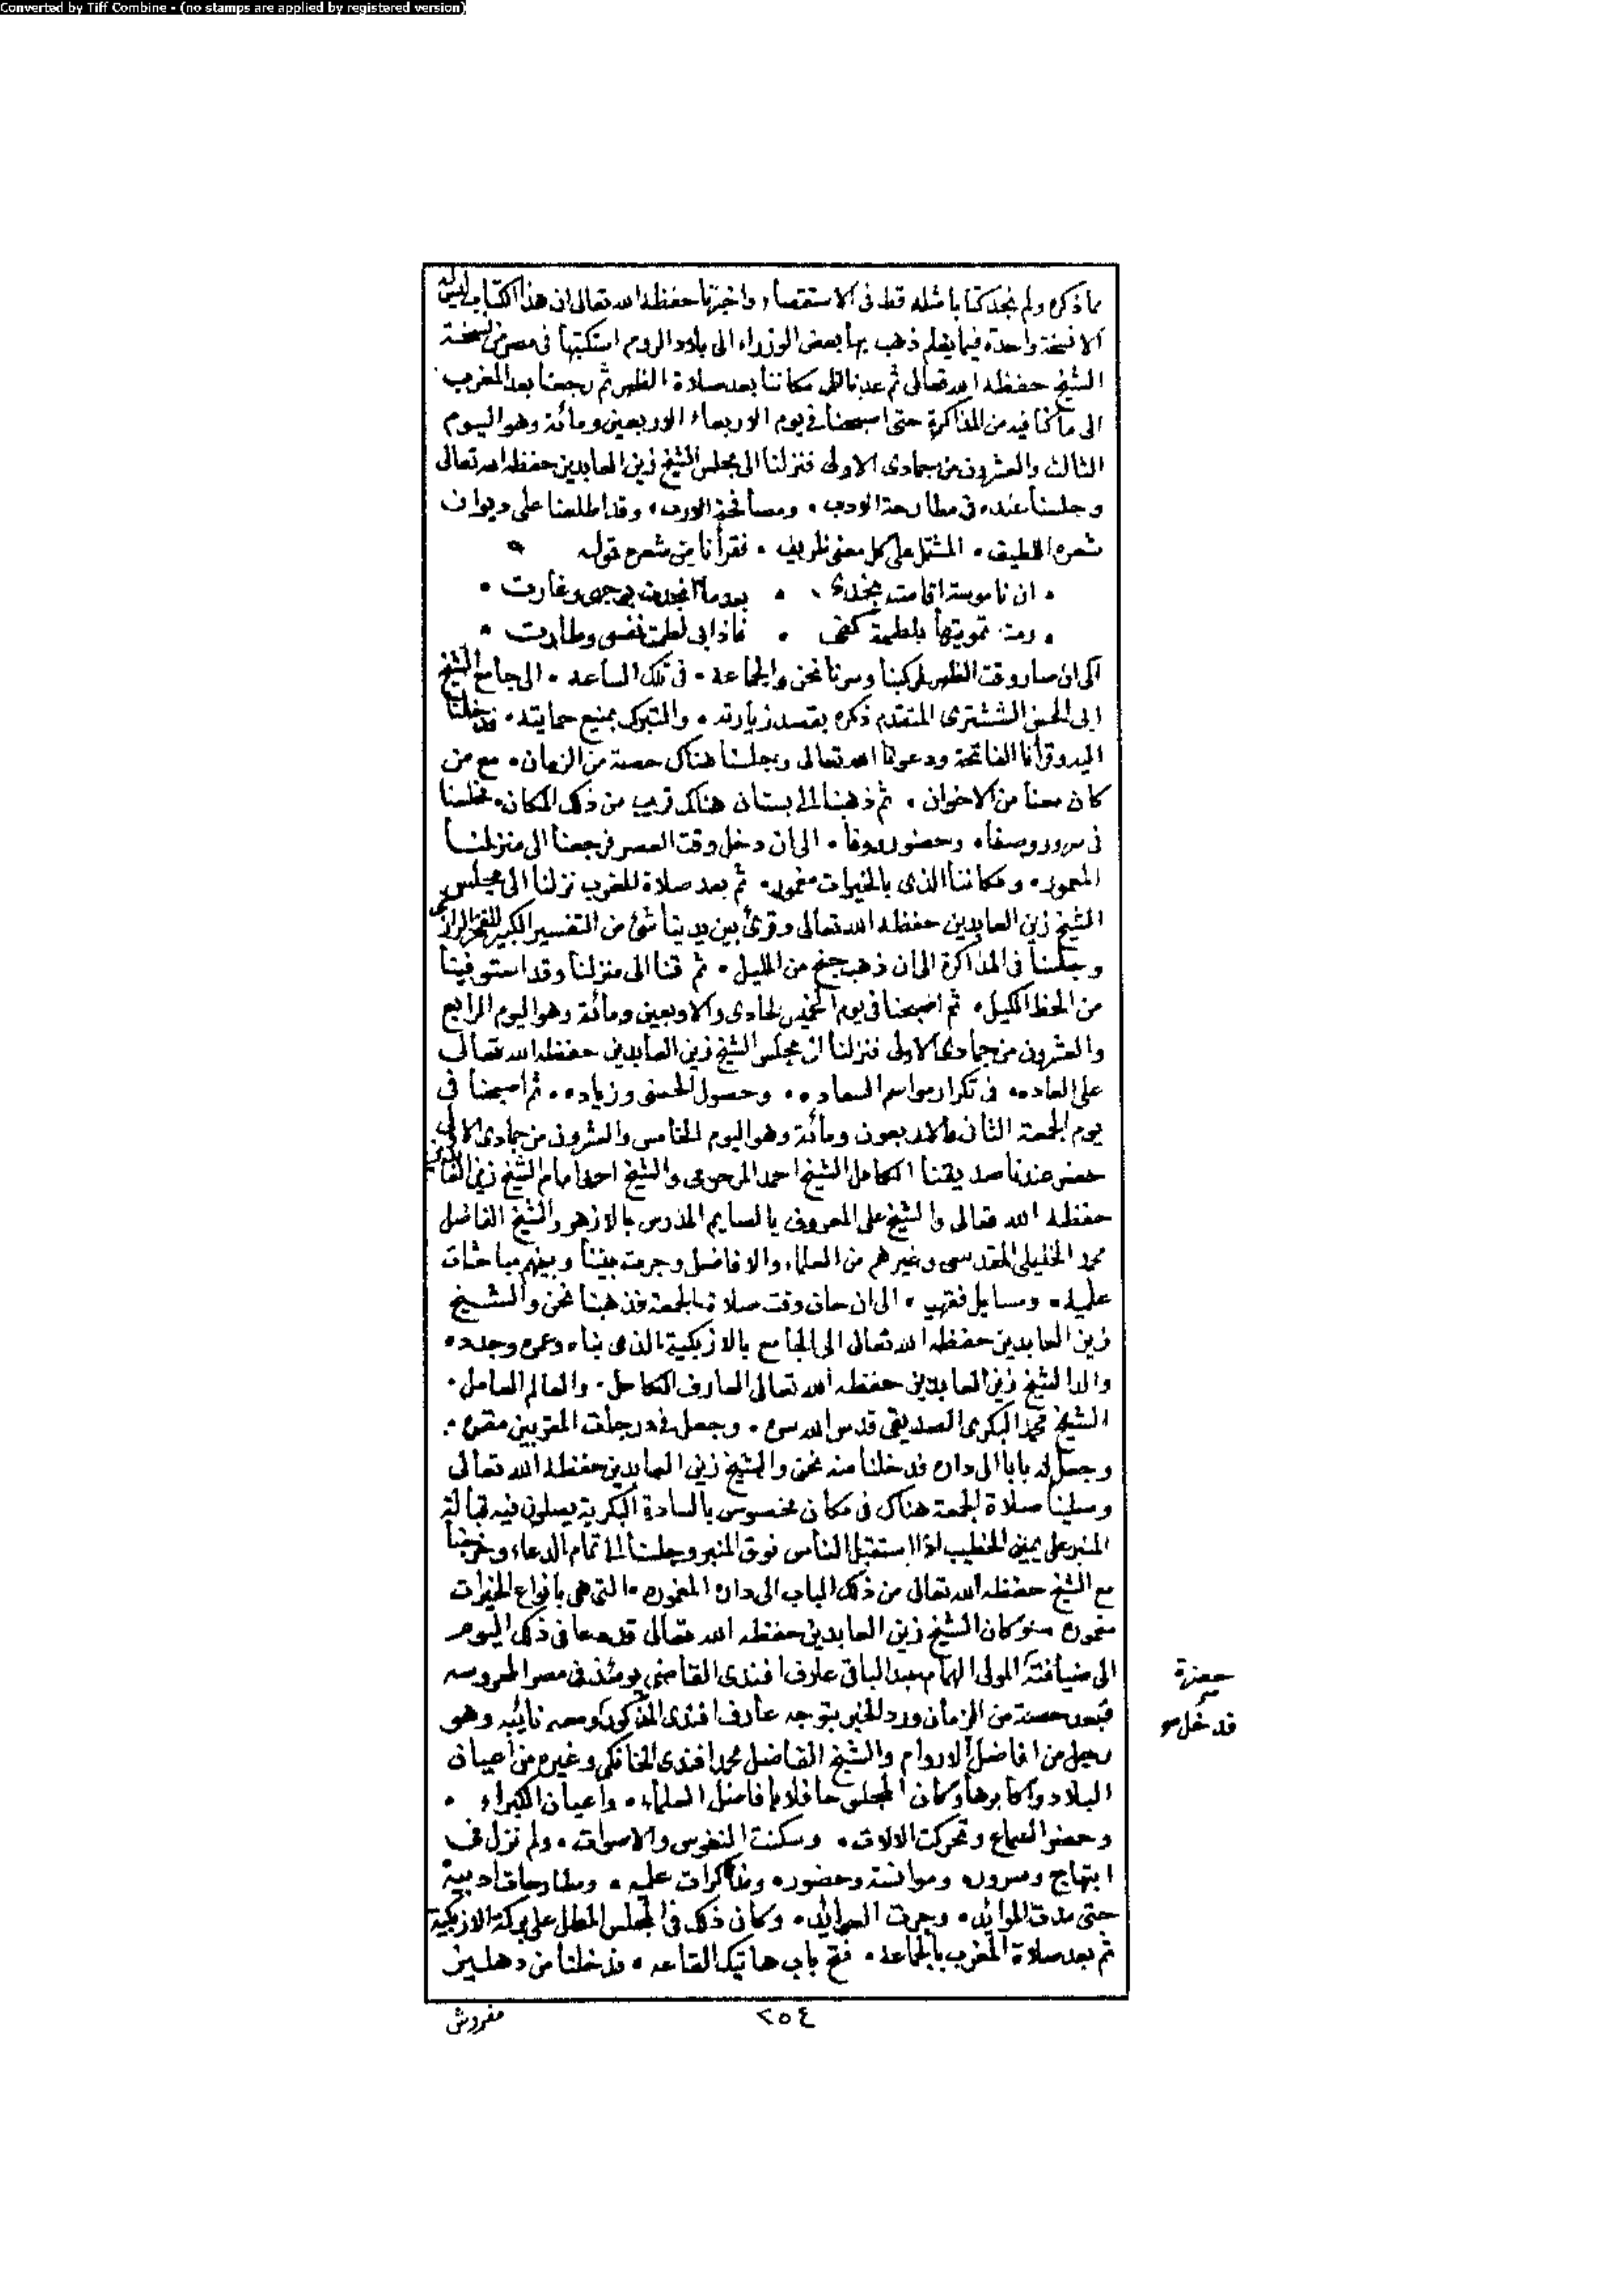 Converted by Tiff Combine - (no stamps are applied by registered version)
مما ذكره ولم نجد كتابا مثله قط فى الاستقصاء واخبرنا حفظه الله تعالى ان هذا الكتاب ليس له
الا نسخة واحدة فيما يعلم ذهب بها بعض الوزراء الى بلاد الروم استكتبها فى مصر من نسخة
الشيخ حفظه الله تعالى ثم عدنا الى مكاننا بعد صلاة الظهر ثم رجعنا بعد المغرب
الى ما كنا فيه من المذاكرة حتى اصبحنا فى يوم الاربعاء الاربعين ومائة وهو اليوم
الثالث والعشرون من جمادى الاولى فنزلنا الى مجلس الشيخ زين العابدين حفظه الله تعالى
وجلسنا عنده فى مطارحة الادب • ومصافحة • وقد اطلعنا على ديوان
شعره اللطيف • المشتمل على كل معنى ظريف • فقرأنا من شعره قوله
• ان ناموسة اقامت بخدى • بعدما وغارت •
• رمت تمويتها بلطمة كفى • فاذا بى لطمت نفسى وطارت •
الى ان صار وقت الظهر فركبنا وسرنا نحن والجماعه • فى تلك الساعه • الى جامع الشيخ
ابى الحسن الششترى المتقدم ذكره بقصد زيارته • والتبرك بمنيع حمايته • فدخلنا
اليه وقرأنا الفاتحة ودعونا الله تعالى وجلسنا هناك حصة من الزمان • مع من
كان معنا من الاخوان • ثم ذهبنا الى بستان هناك قريب من ذلك المكان • فجلسنا
فى سرور وصفاء • وحضور ووفا • الى ان دخل وقت العصر فرجعنا الى منزلنا
المعمور • ومكاننا الذى بالخيرات مغمور • ثم بعد صلاة المغرب نزلنا الى مجلس
الشيخ زين العابدين حفظه الله تعالى وقرئ بين يدينا شئ من التفسير الكبير للفخر الرازى
وجلسنا فى المذاكرة الى ان ذهب جنح من الليل • ثم قمنا الى منزلنا وقد استوفينا
من الحظ الكيل • ثم اصبحنا فى يوم الخميس الحادى والاربعين ومائة وهو اليوم الرابع
والعشرون من جمادى الاولى فنزلنا الى مجلس الشيخ زين العابدين حفظه الله تعالى
على العاده • فى تكرار مواسم السعاده • وحصول الحسنى وزياده • ثم اصبحنا فى
يوم الجمعة الثانى والاربعون ومائة وهو اليوم الخامس والعشرون من جمادى الاولى
حضر عندنا صديقنا الكامل الشيخ احمد المرحومى والشيخ احمد امام الشيخ زين العابدين
حفظه الله تعالى والشيخ على المعروف بالسايم المدرس بالازهر والشيخ الفاضل
محمد الخليلى المقدسى وغيرهم من العلماء والافاضل وجرت بيننا وبينهم مباحثات
علميه • ومسايل فقهيه • الى ان حان وقت صلاة الجمعة فذهبنا نحن والشيخ
زين العابدين حفظه الله تعالى الى الجامع بالازبكية الذى بناه وعمره وجدده
والد الشيخ زين العابدين حفظه الله تعالى العارف الكامل • والعالم العامل •
الشيخ محمد البكرى الصديقى قدس الله سره • وجعل فى درجات المقربين مقره •
وجعل له بابا الى داره فدخلنا منه نحن والشيخ زين العابدين حفظه الله تعالى
وصلينا صلاة الجمعة هناك فى مكان مخصوص بالسادة البكرية يصلون فيه قبالة
المنبر على يمين الخطيب اذا استقبل الناس فوق المنبر وجلسنا الى تمام الدعاء وخرجنا
مع الشيخ حفظه الله تعالى من ذلك الباب الى داره المعموره • التى هى بانواع الخيرات
مغموره • وكان الشيخ زين العابدين حفظه الله تعالى قد دعا فى ذلك اليوم
الى ضيافته المولى الهمام عبد الباقى عارف افندى القاضى يومئذ فى مصر المحروسه
فبعد حصة من الزمان ورد الخبر بتوجه عارف افندى المذكور ومعه نائبه وهو
رجل من افاضل الاروام والشيخ الفاضل محمد افندى الخانكى وغيره من اعيان
البلاد واكابرها وكان المجلس حافلا بافاضل العلماء • واعيان الكبراء •
وحضر السماع وتحركت الالات • وسكنت النفوس والاصوات • ولم نزل فى
ابتهاج وسرور • وموانسة وحضور • ومذاكرات علميه • ومطارحات ادبية
حتى مدت الموائد • وجرت العوائد • وكان ذلك فى المجلس المطل على بركة الازبكية
ثم بعد صلاة المغرب بالجماعه • فتح باب هاتيك القاعه • فدخلنا من دهليز
حضرة
فدخل
٢٥٤
مفروش